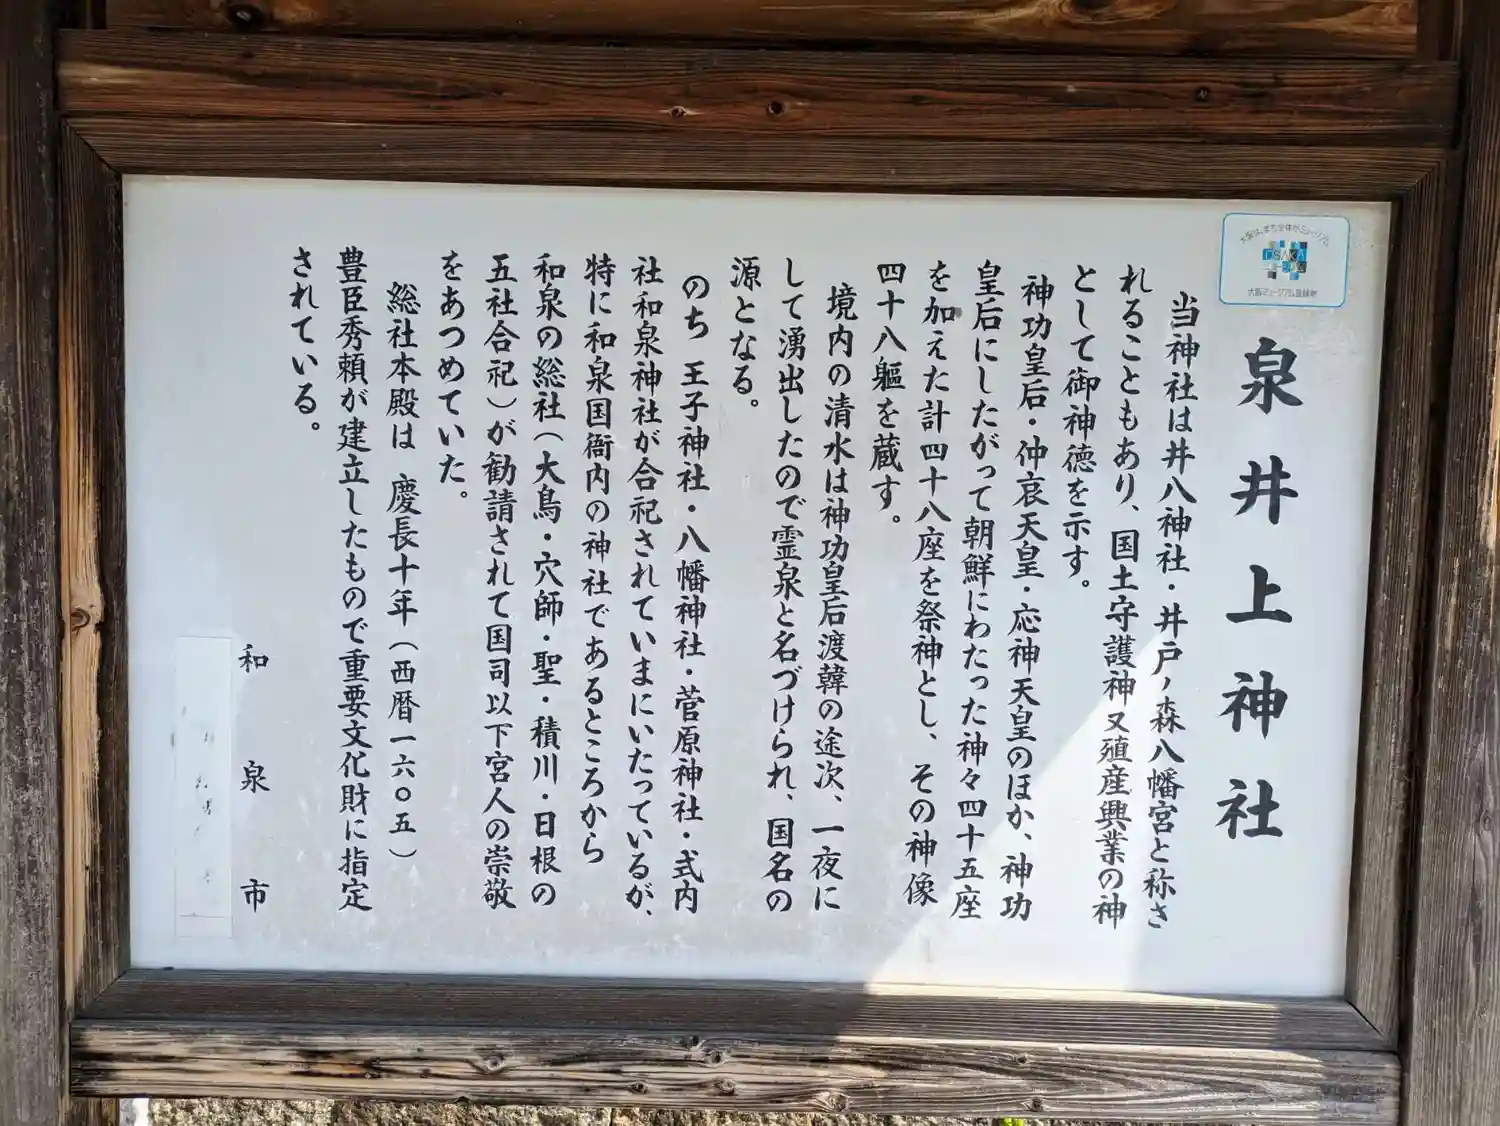 泉井上神社
当神社は井八神社・井戸ノ森八幡宮と称さ
れることもあり、国土守護神又殖産興業の神
として御神徳を示す。
神功皇后・仲哀天皇・応神天皇のほか、神功
皇后にしたがって朝鮮にわたった神々四十五座
を加えた計四十八座を祭神とし、その神像
四十八軀を蔵す。
境内の清水は神功皇后渡韓の途次、一夜に
して湧出したので霊泉と名づけられ、国名の
源となる。
のち 王子神社・八幡神社・菅原神社・式内
社和泉神社が合祀されていまにいたっているが、
特に和泉国衙内の神社であるところから
和泉の総社(大鳥・穴師・聖・積川・日根の
五社合祀)が勧請されて国司以下宮人の崇敬
をあつめていた。
総社本殿は 慶長十年(西暦一六〇五)
豊臣秀頼が建立したもので重要文化財に指定
されている。
和泉市
大阪は、まち全体がミュージアム
OSAKA
大阪ミュージアム登録物